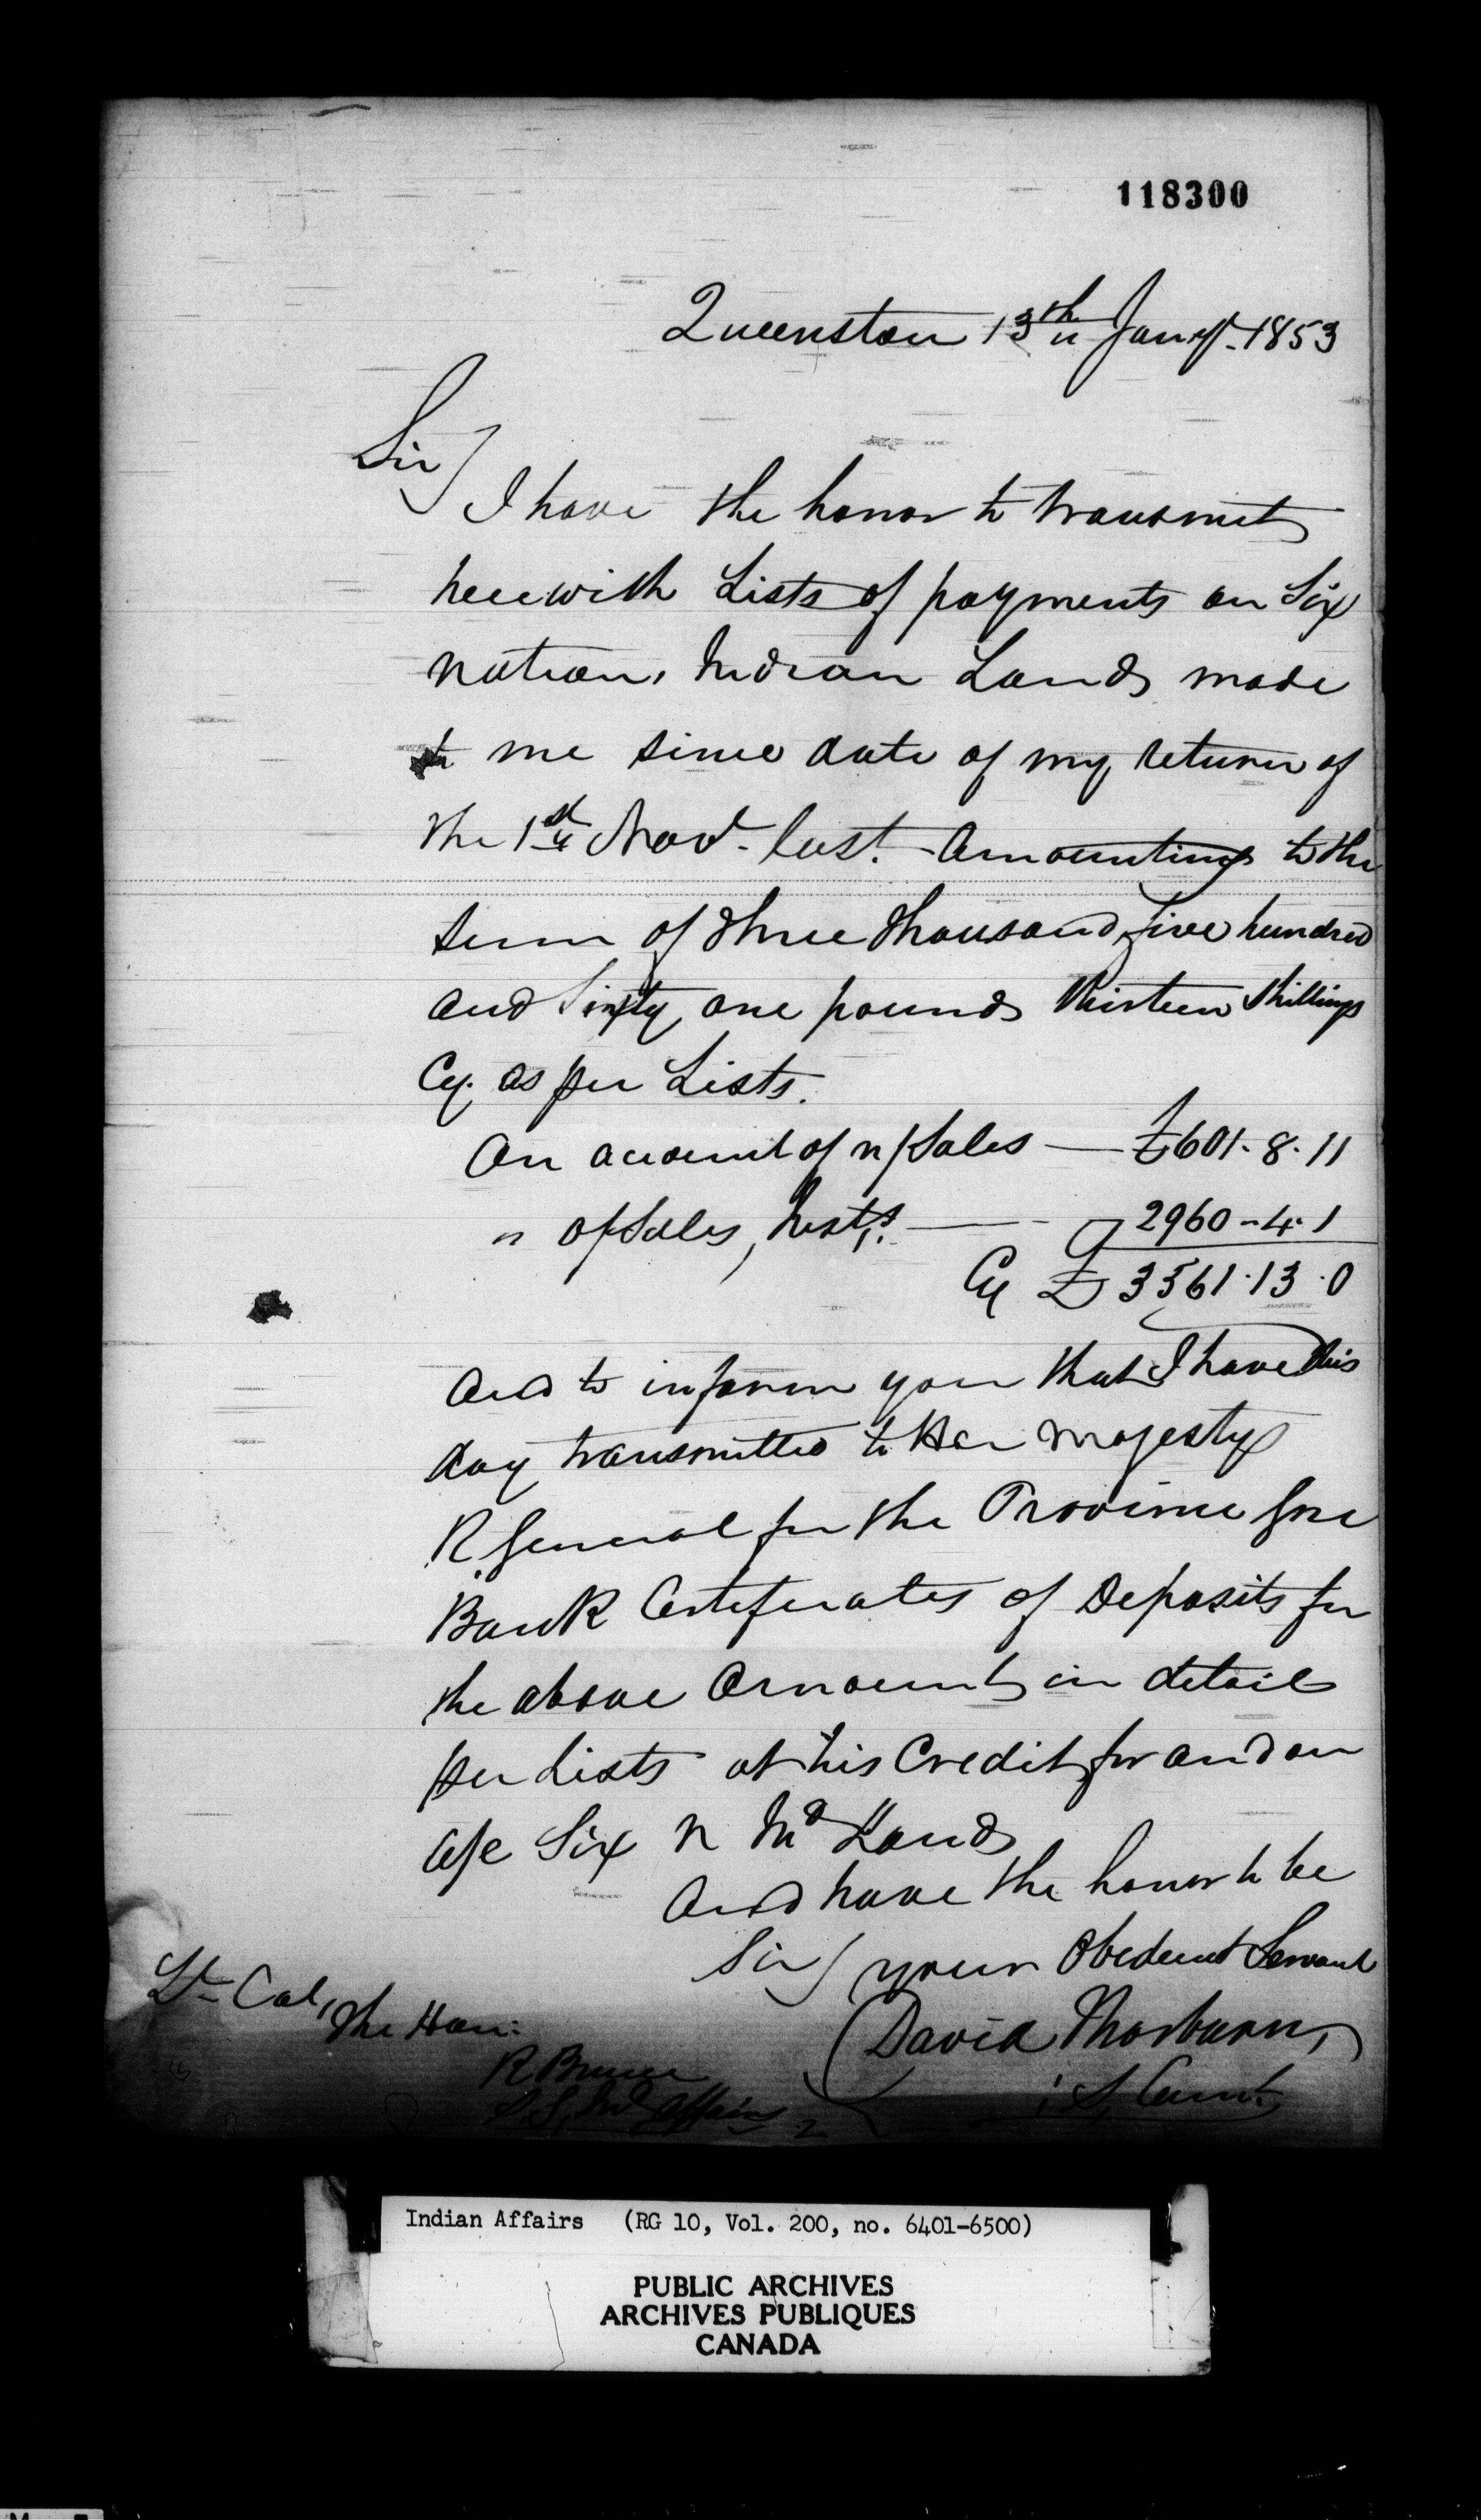 118300
Queenston 13th Jany. 1853
Sir
I have the honor to transmit
herewith Lists of payments on Six
nation, Indian Lands made
to me since date of my return of
the 1st Novr. last. Amounting to the
sum of three thousand, five hundred
and Sixty one pounds thirteen Shillings
Cy. as per Lists.
On account of n/Sales — £601.8.11
" of Sales, Insts. — 2960-4.1
Cy £ 3561.13.0
and to inform you that I have this
day transmitted to Her Majesty
R. General for the Province
Bank Certificates of Deposits for
the above Amount in detail
per Lists at his Credit for and on
a/c Six N Ind Lands
And have the honor to be
Sir your Obedient Servant
David Thorburn,
Lt Col, the Hon:
R Bruce
S. G. Ind Affairs
Indian Affairs (RG 10, Vol. 200, no. 6401-6500)
PUBLIC ARCHIVES
ARCHIVES PUBLIQUES
CANADA